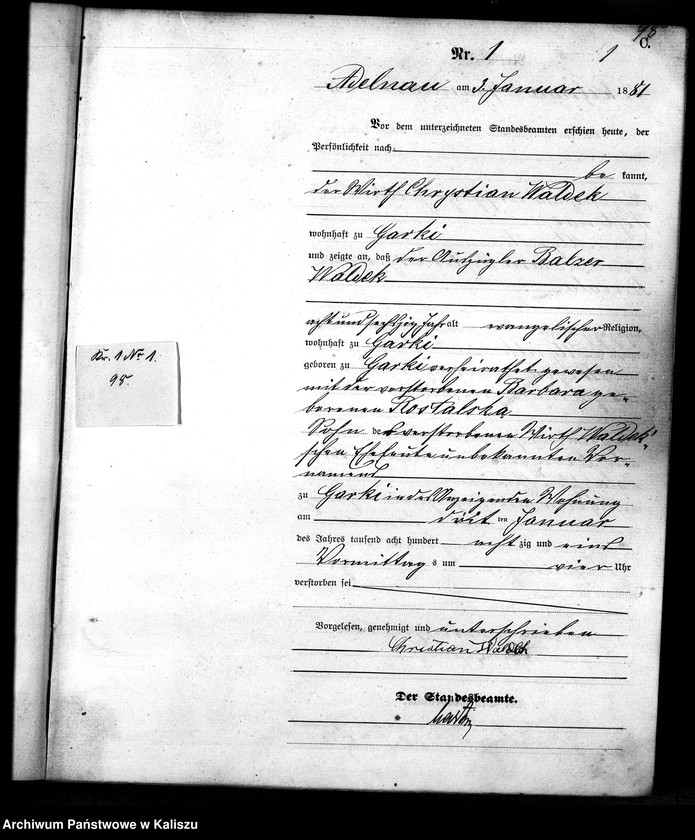 95
C.
Nr. 1
1
Adelnau am 3. Januar 1881
Vor dem unterzeichneten Standesbeamten erschien heute, der
Persönlichkeit nach
be kannt,
der Wirth Chrystian Waldek
wohnhaft zu Garki
und zeigte an, daß der Auszügler Balzer
Waldek
acht und sechszig Jahr alt evangelischer Religion,
wohnhaft zu Garki
geboren zu Garki verheirathet gewesen
mit der verstorbenen Barbara ge-
borenen Rostalska
Sohn der verstorbenen Wirth Waldek'-
schen Eheleute unbekannten Vor-
namens
zu Garki in des Anzeigenden Wohnung
am drit ten Januar
des Jahres tausend acht hundert acht zig und eins
Vormittag s um vier Uhr
verstorben sei
Vorgelesen, genehmigt und unterschrieben
Christian
Der Standesbeamte.
Kr. 1 No 1.
95.
Archiwum Państwowe w Kaliszu